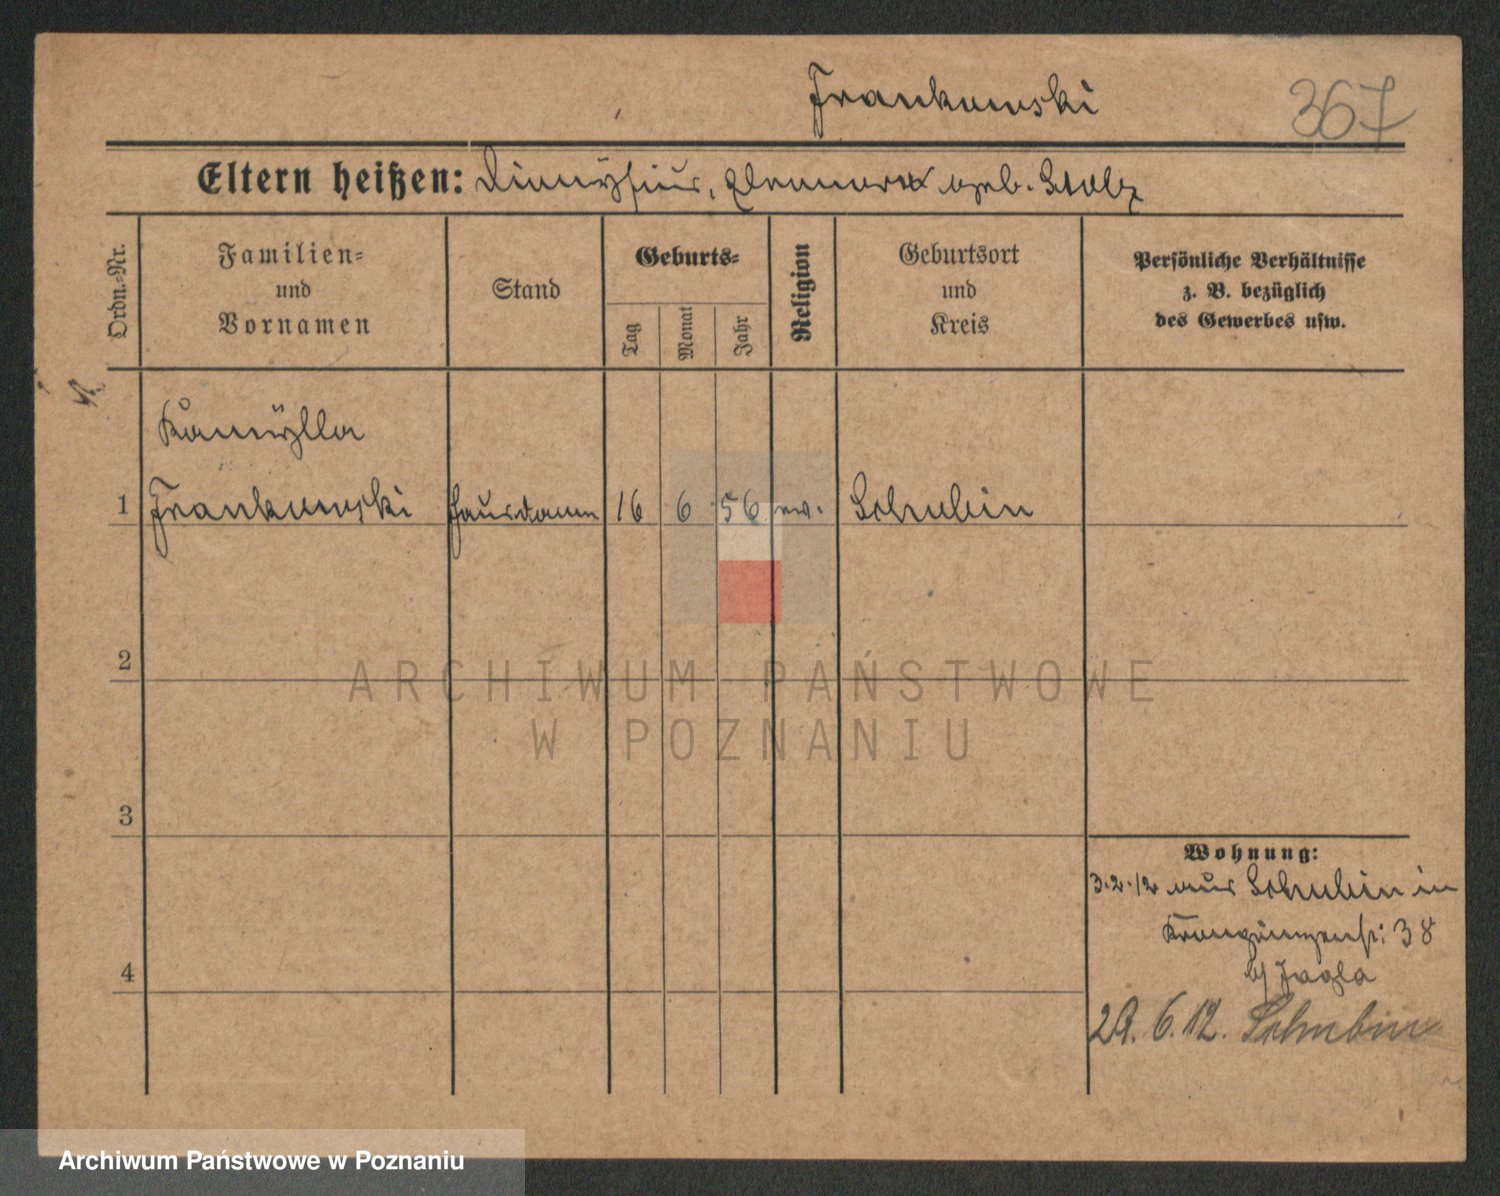 Frankowski
367
Eltern heißen: Dionÿsius, Eleonora geb. Stolz
Ordn.-Nr.
Familien-
und
Vornamen
Stand
Geburts-
Tag
Monat
Jahr
Religion
Geburtsort
und
Kreis
Persönliche Verhältnisse
z. B. bezüglich
des Gewerbes usw.
Kamÿlla
1 Frankowski Hausdame 16 6 56 Schubin
2
3
4
Wohnung:
3.2.12 aus Schubin in
Kronprinzenstr: 38
b/ Jagla
29.6.12. Schubin
ARCHIWUM PAŃSTWOWE
W POZNANIU
Archiwum Państwowe w Poznaniu